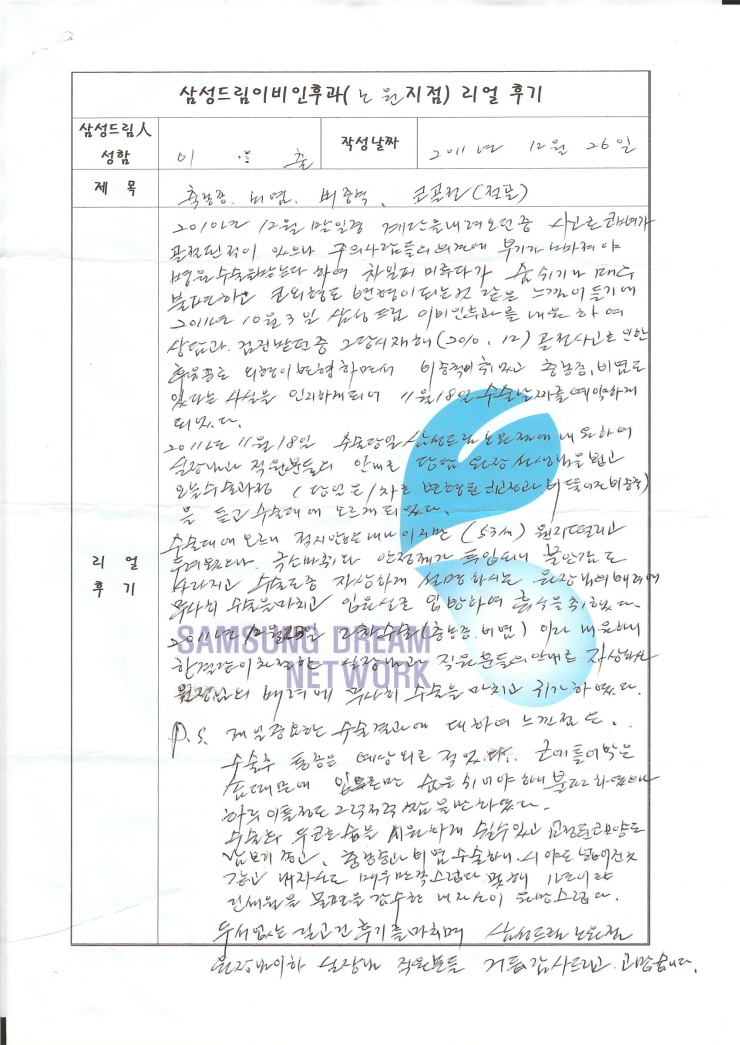 삼성드림이비인후과(노원지점) 리얼 후기
삼성드림人 성함
이 출
작성날짜
2011년 12월 26일
제 목
축농증, 비염, 비중격, 코골절(전문)
리 얼 후 기
2010년 12월 말일경 계단을 내려오던중 사고로 콧대가
골절된적이 있으나 주의사람들의 의견에 부기가 빠져야
병원수술을받는다 하여 차일피 미루다가 숨쉬기가 매우
불편하고 코외형도 변형이 되는것 같은 느낌이 들기에
2011년 10월 3일 삼성드림 이비인후과를 내원 하여
상담과 검진받던중 그당시 재해(2010. 12) 골절사고로 인한
후유증으로 외형이 변형하면서 비중격이 휘고 축농증, 비염도
있다는 사실을 인지하게되어 11월 18일 수술날짜를 예약하게
되었다.
2011년 11월 18일 수술당일 삼성드림 노원점에 내원하여
실장님과 직원분들의 안내로 담당 원장선생님을 뵙고
오늘수술과정 (당일은 1차로 변형된 코교정과 비뚤어진 비중격)
을 듣고 수술대에 오르게 되었다.
수술대에 오르니 적지안은 나이지만 (53세) 왠지 떨리고
두려웠으나 국소마취와 안정제가 투입되니 불안감도
사라지고 수술도중 자상하게 설명하시는 원장님의 배려에
무사히 수술을마치고 입원실로 입방하여 휴식을 취했다.
2011년 12월 23일 2차수술(축농증, 비염) 이라 내원하니
한결같이 친절한 실장님과 직원분들의 안내로 자상하신
원장님의 배려에 무사히 수술을 마치고 귀가 하였다.
P.S. 제일중요한 수술결과에 대하여 느낀점은..
수술후 통증은 예상외로 적었다. 코에 틀어막은
솜 때문에 입으로만 숨을 쉬어야 하니 불편하였으나
하루 이틀정도 그럭저럭 참을만 하였다.
수술후 우선 숨을 시원하게 쉴수있고 교정된코모양도
남보기 좋고, 축농증과 비염 수술하니 시야도 넓어진것
같고 내자신도 매우만족스럽다 못해 1년이란
긴세월을 불편을 감수한 내자신이 원망스럽다.
두서없는 길고긴 후기를마치며 삼성드림 노원점
원장님이하 실장님 직원분들 거듭감사드리고 고맙습니다.
SAMSUNG DREAM
NETWORK